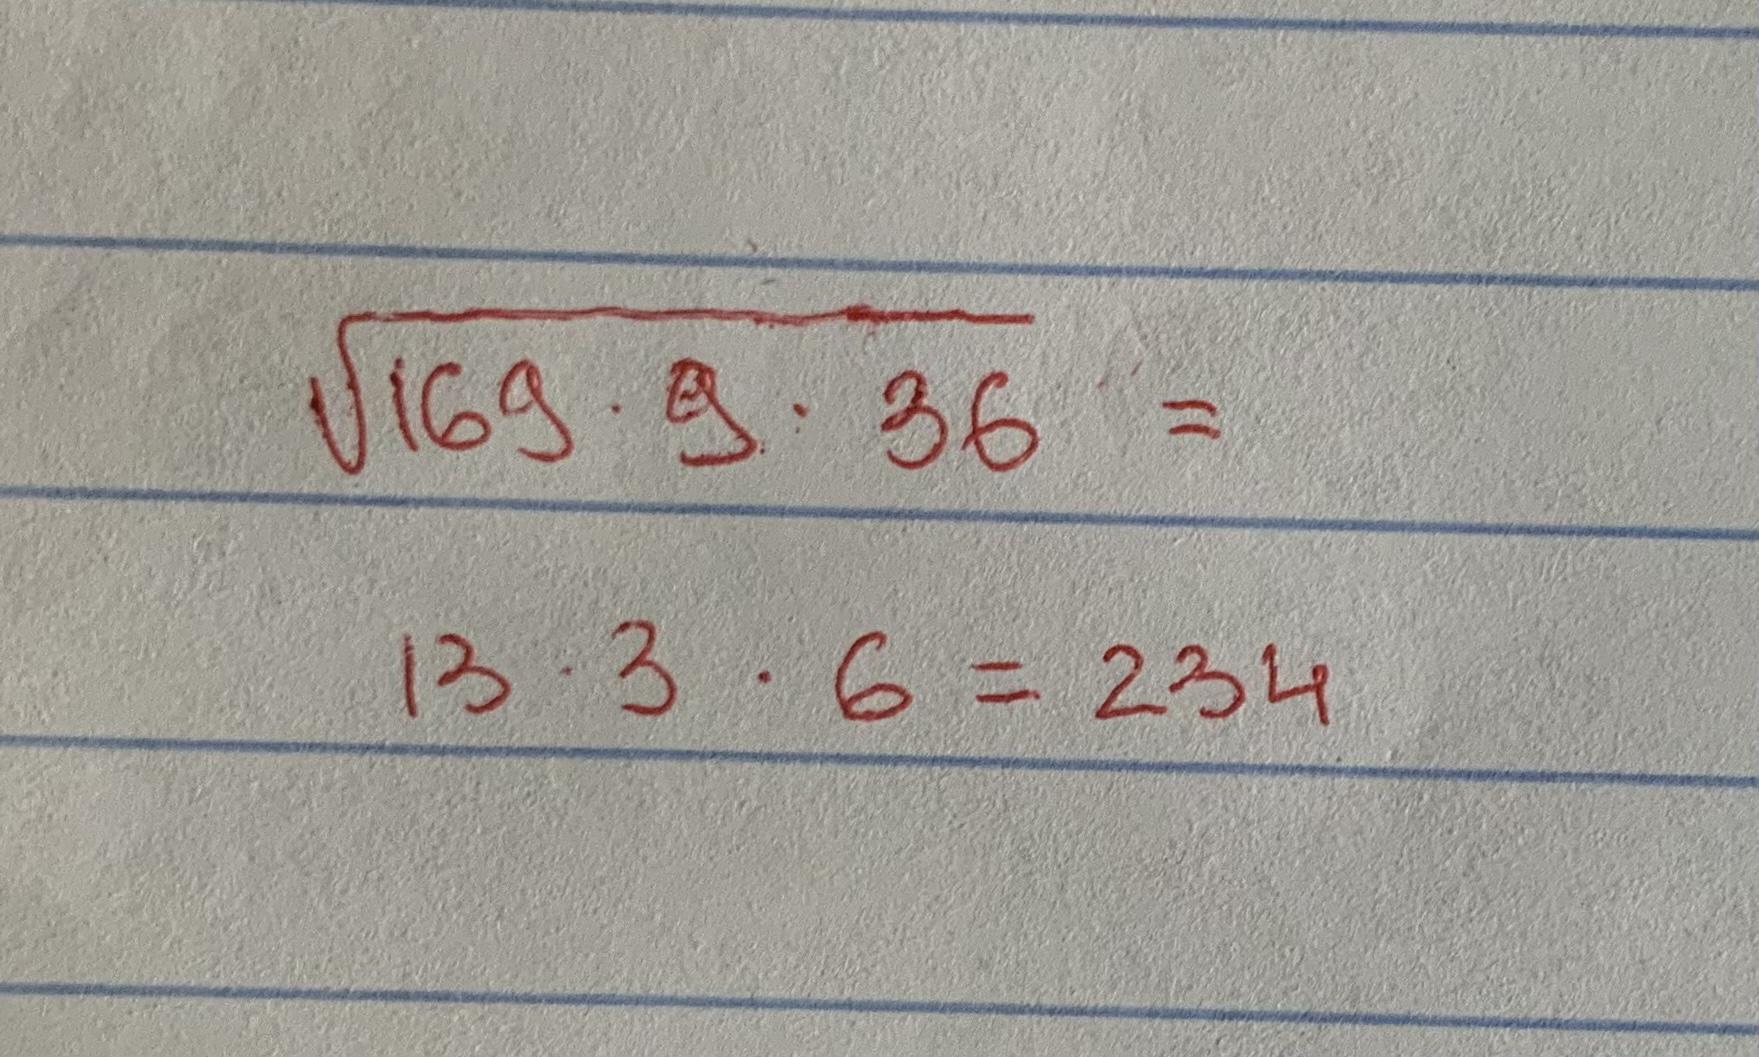 √169 · 9 · 36 =
13 · 3 · 6 = 234